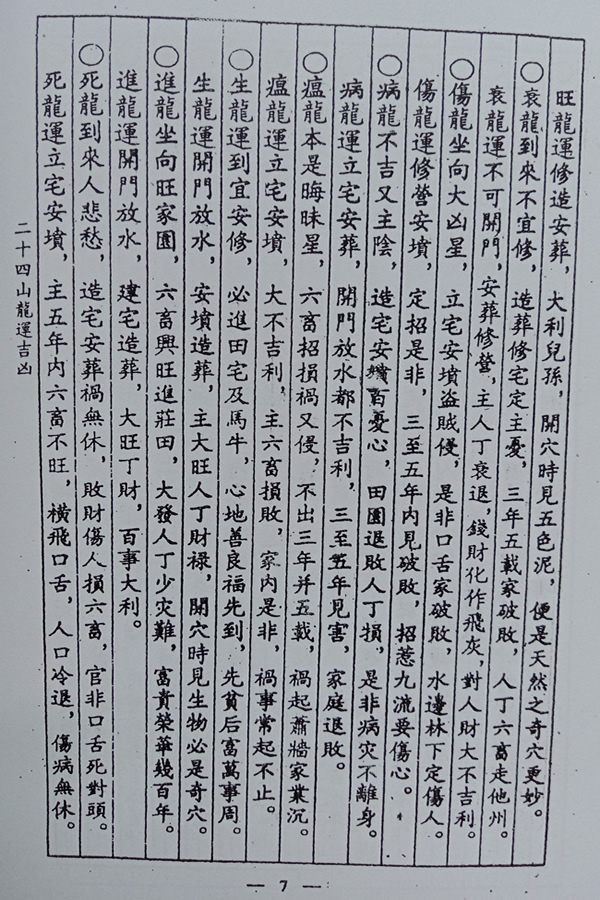 旺龍運修造安葬，大利兒孫，開穴時見五色泥，便是天然之奇穴更妙。
○衰龍到來不宜修，造葬修宅定主憂，三年五載家破敗，人丁六畜走他州。
衰龍運不可開門，安葬修營，主人丁衰退，錢財化作飛灰，對人財大不吉利。
○傷龍坐向大凶星，立宅安墳盜賊侵，是非口舌家破敗，水邊林下定傷人。
傷龍運修營安墳，定招是非，三至五年內見破敗，招惹九流要傷心。
○病龍不吉又主陰，造宅安墳百憂心，田園退敗人丁損，是非病灾不離身。
病龍運立宅安葬，開門放水都不吉利，三至五年見害，家庭退敗。
○瘟龍本是晦昧星，六畜招損禍又侵，不出三年并五載，禍起蕭牆家業沉。
瘟龍運立宅安墳，大不吉利，主六畜損敗，家內是非，禍事常起不止。
○生龍運到宜安修，必進田宅及馬牛，心地善良福先到，先貧后富萬事周。
生龍運開門放水，安墳造葬，主大旺人丁財祿，開穴時見生物必是奇穴。
○進龍坐向旺家園，六畜興旺進莊田，大發人丁少灾難，富貴榮華幾百年。
進龍運開門放水，建宅造葬，大旺丁財，百事大利。
○死龍到來人悲愁，造宅安葬禍無休，敗財傷人損六畜，官非口舌死對頭。
死龍運立宅安墳，主五年內六畜不旺，橫飛口舌，人口冷退，傷病無休。
二十四山龍運吉凶
— 7 —